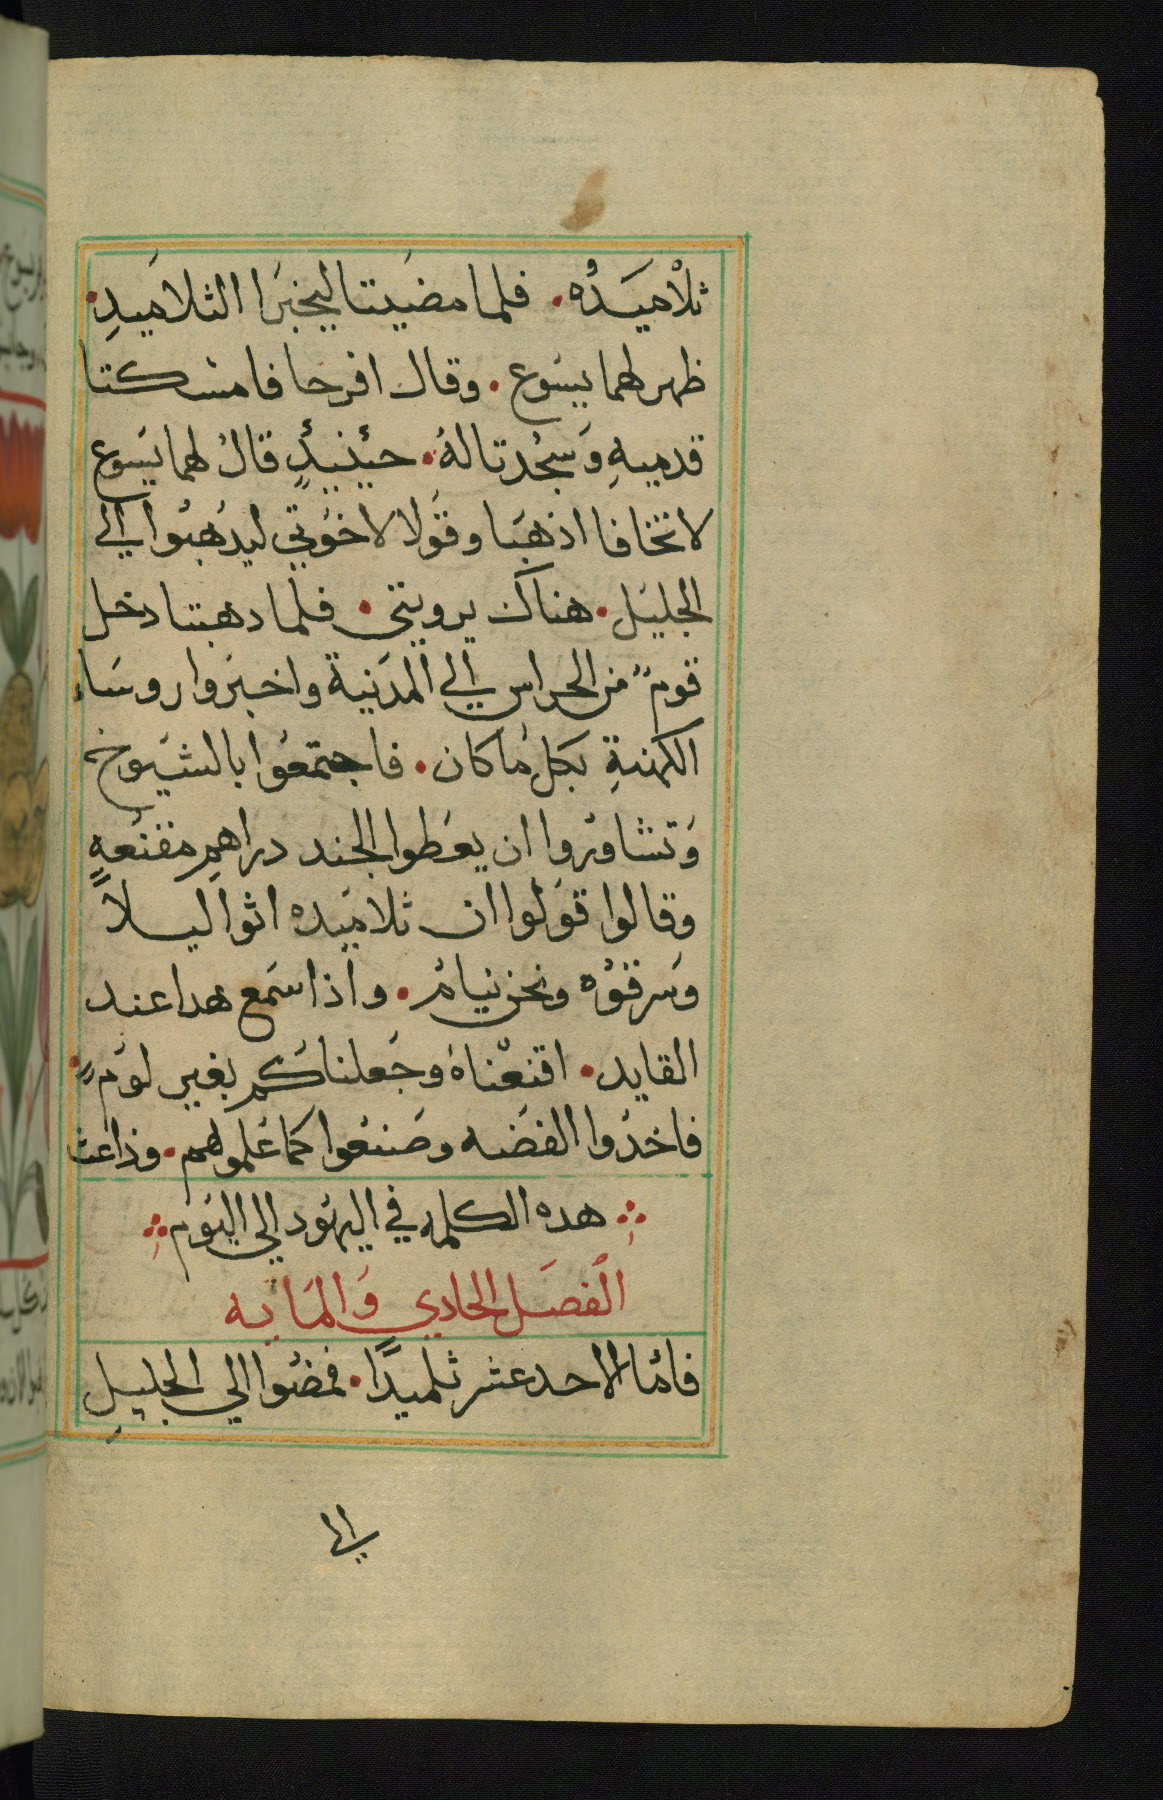 ثلاميَذُه. فلما مضيَتا ليخبرَا الثلاميَدِ.
ظهر لهما يسُوع. وقال افرحا فامسكتا
قدميهِ وَسجُدتا لهُ. حئنيذٍ قالُ لهما يَسوع
لا تخافا اذهبَا وقوَلا لاخوُتي ليدُهبُوا الي
الجليَل. هناك يرويني. فلما دهبتا دخل
قومٌ من الحراس الي المدَنية واخبرَوا روسَاء
الكهنةِ بكلُ ما كان. فاجتمعُوا بالشيَوخ
وَتشاورُوا ان يعَطوا الجند دراهمِ مقنعهٍ
وقالوا قولُوا ان ثلاميَده اثوا ليلاً
وَسرقوُه ونحن نيامُ. واذا سَمع هدا عند
القايد. اقنعْناهُ وجَعلناكم بغير لوَمٍ.
فاخدُوا الفضَه وصَنعُوا كما عَلموُهم. وذاعت
هده الكلمه في اليهوُد الي اليوَم
الفصَل الحادي وَالمَايه
فامُا الاحد عشر ثلميدًا. فمضُوا الي الجليلِ
الي